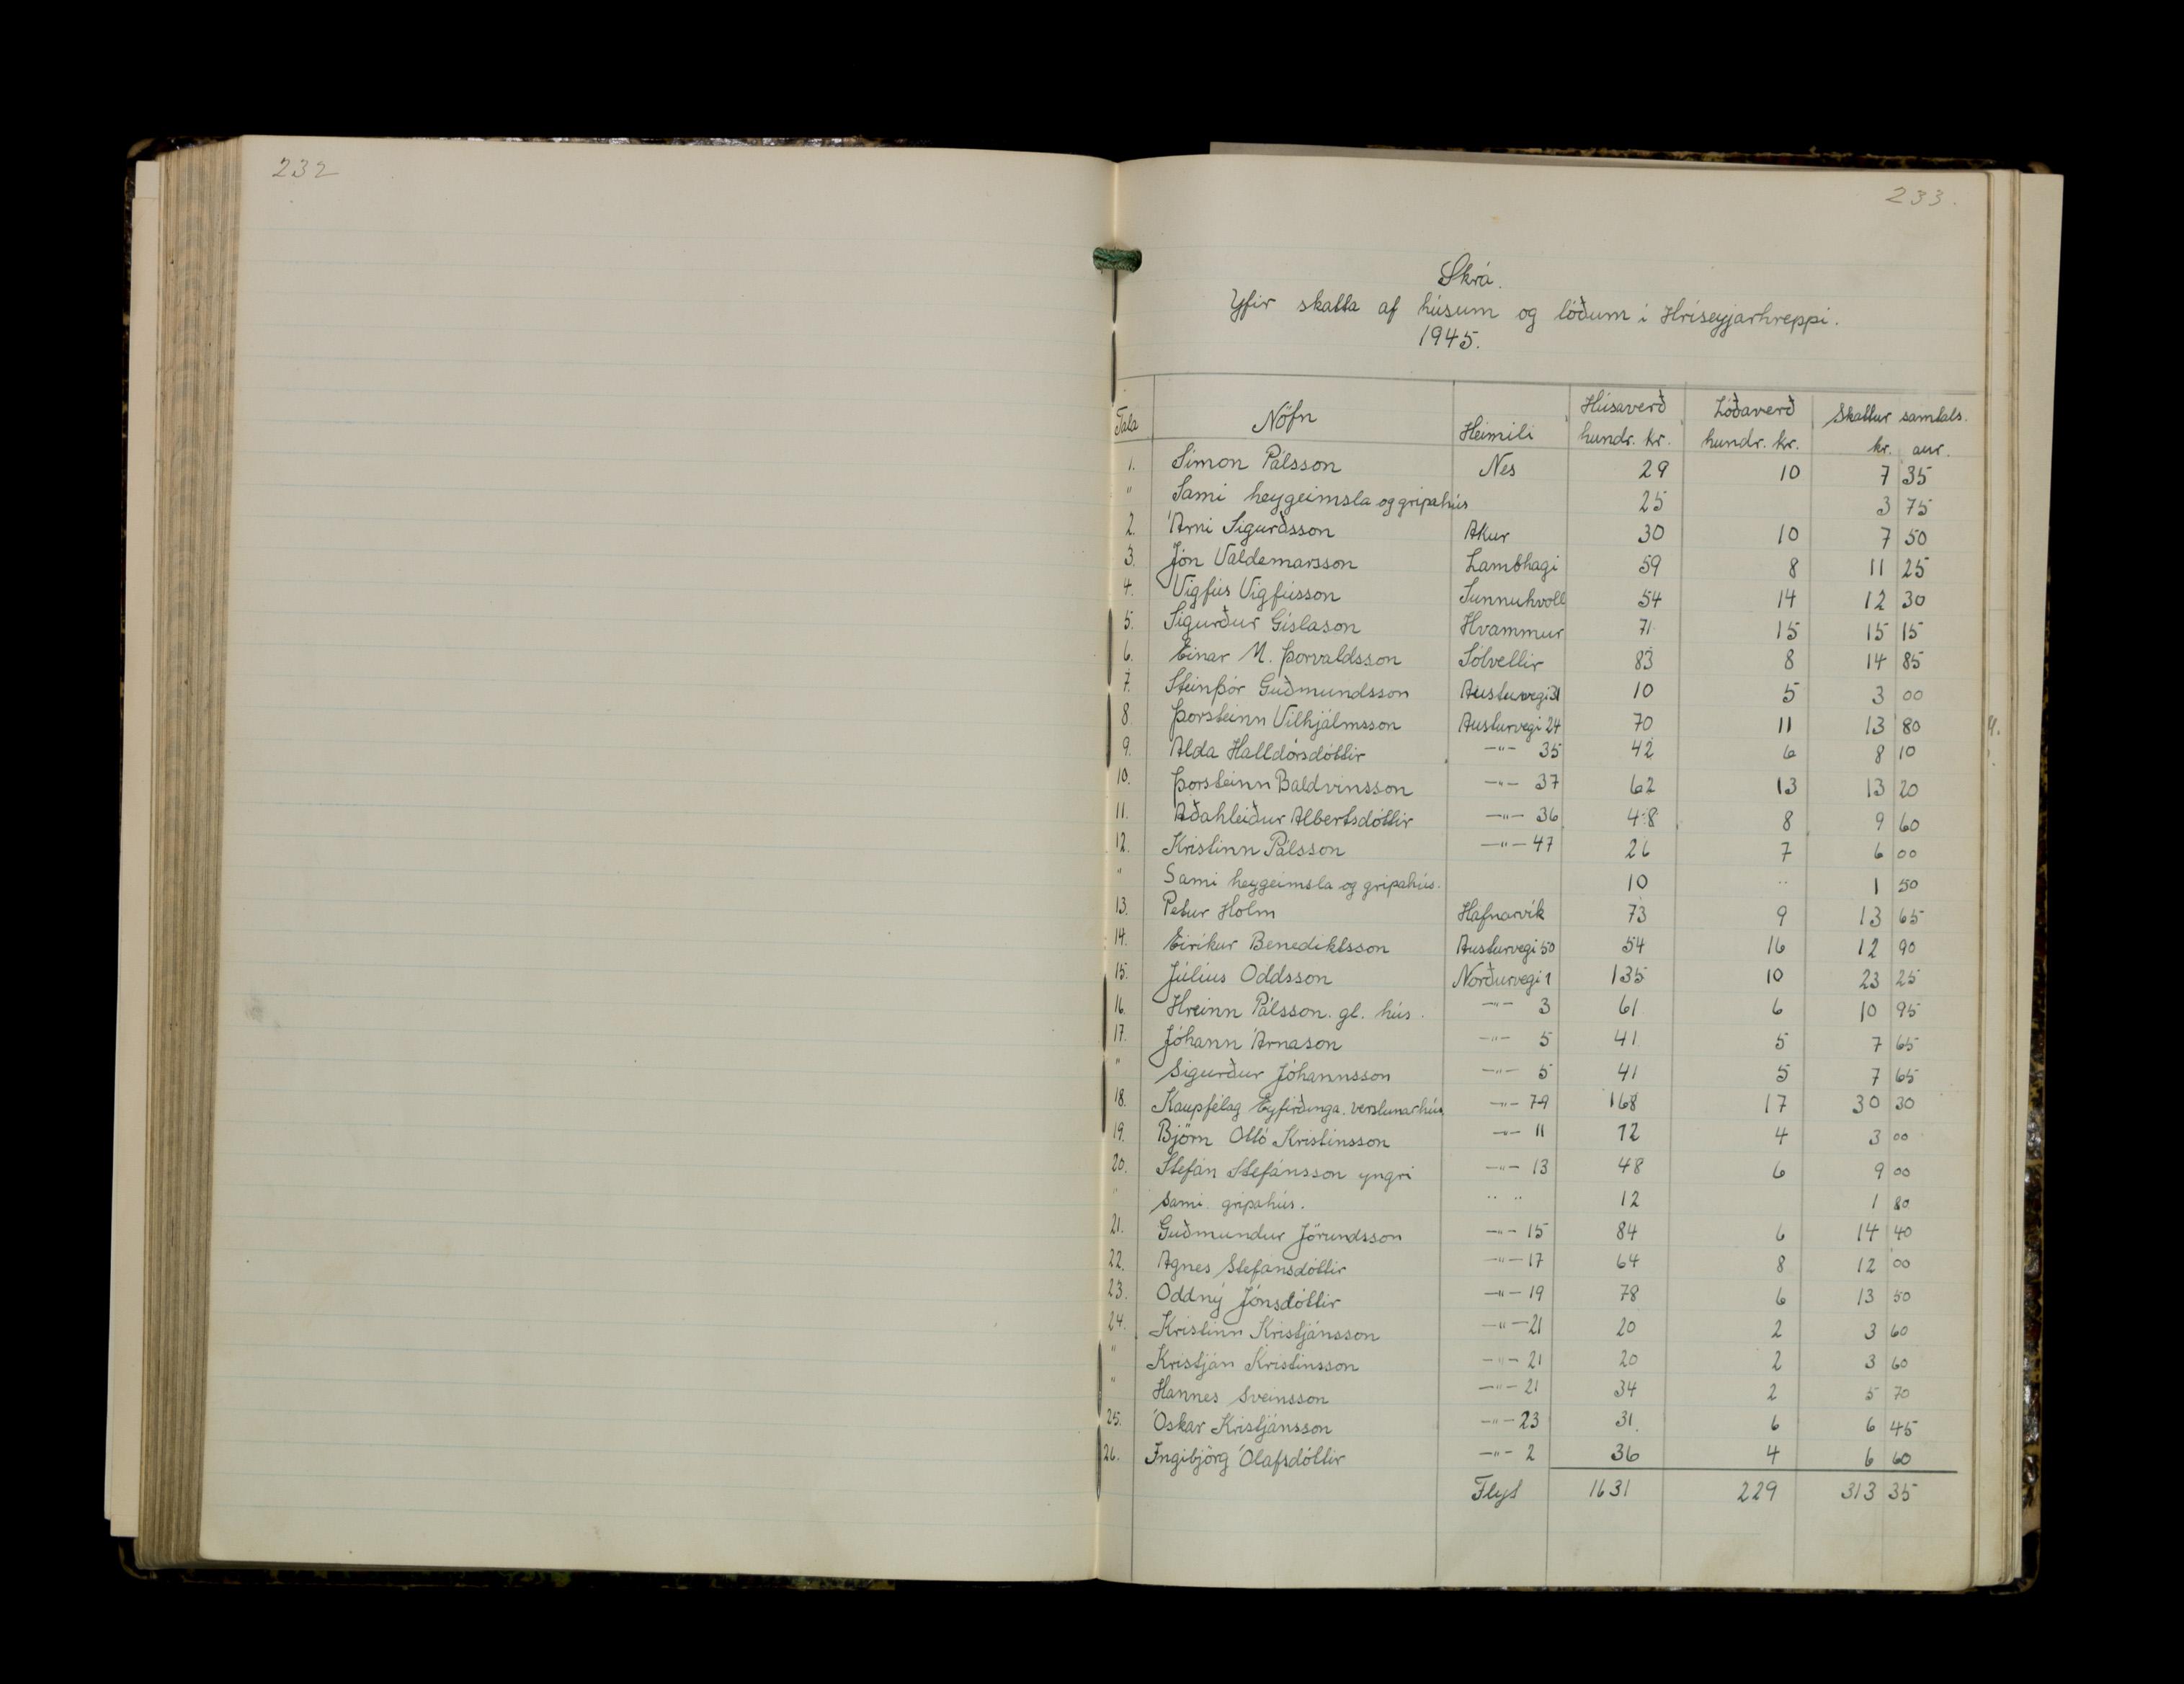 232
233.
Skrá.
Yfir skatta af húsum og lóðum í Hríseyjarhreppi.
1945.
Tala Nöfn Heimili Húsaverð hundr. kr. Lóðaverð hundr. kr. Skattur samtals. kr. aur.
1. Símon Pálsson Nes 29 10 7 35
" Sami heygeimsla og gripahús 25 3 75
2. Árni Sigurðsson Akur 30 10 7 50
3. Jón Valdemarsson Lambhagi 59 8 11 25
4. Vigfús Vigfússon Sunnuhvoll 54 14 12 30
5. Sigurður Gíslason Hvammur 71 15 15 15
6. Einar M. Þorvaldsson Sólvellir 83 8 14 85
7. Steinþór Guðmundsson Austurvegi 31 10 5 3 00
8. Þorsteinn Vilhjálmsson Austurvegi 24 70 11 13 80
9. Alda Halldórsdóttir —"— 35 42 6 8 10
10. Þorsteinn Baldvinsson —"— 37 62 13 13 20
11. Aðahleiður Albertsdóttir —"— 36 48 8 9 60
12. Kristinn Pálsson —"— 47 26 7 6 00
" Sami heygeimsla og gripahús. 10 .. 1 50
13. Petur Holm Hafnarvík 73 9 13 65
14. Eiríkur Benediktsson Austurvegi 50 54 16 12 90
15. Júlíus Oddsson Norðurvegi 1 135 10 23 25
16. Hreinn Pálsson. gl. hús. —"— 3 61 6 10 95
17. Jóhann Árnason —"— 5 41 5 7 65
" Sigurður Jóhannsson —"— 5 41 5 7 65
18. Kaupfélag Eyfirðinga. verslunarhús —"— 79 168 17 30 30
19. Björn Ottó Kristinsson —"— 11 12 4 3 00
20. Stefán Stefánsson yngri —"— 13 48 6 9 00
" Sami gripahús. " " 12 1 80
21. Guðmundur Jörundsson —"— 15 84 6 14 40
22. Agnes Stefánsdóttir —"— 17 64 8 12 00
23. Oddný Jónsdóttir —"— 19 78 6 13 50
24. Kristinn Kristjánsson —"— 21 20 2 3 60
" Kristján Kristinsson —"— 21 20 2 3 60
" Hannes Sveinsson —"— 21 34 2 5 70
25. Óskar Kristjánsson —"— 23 31 6 6 45
26. Ingibjörg Ólafsdóttir —"— 2 36 4 6 60
Flyt 1631 229 313 35